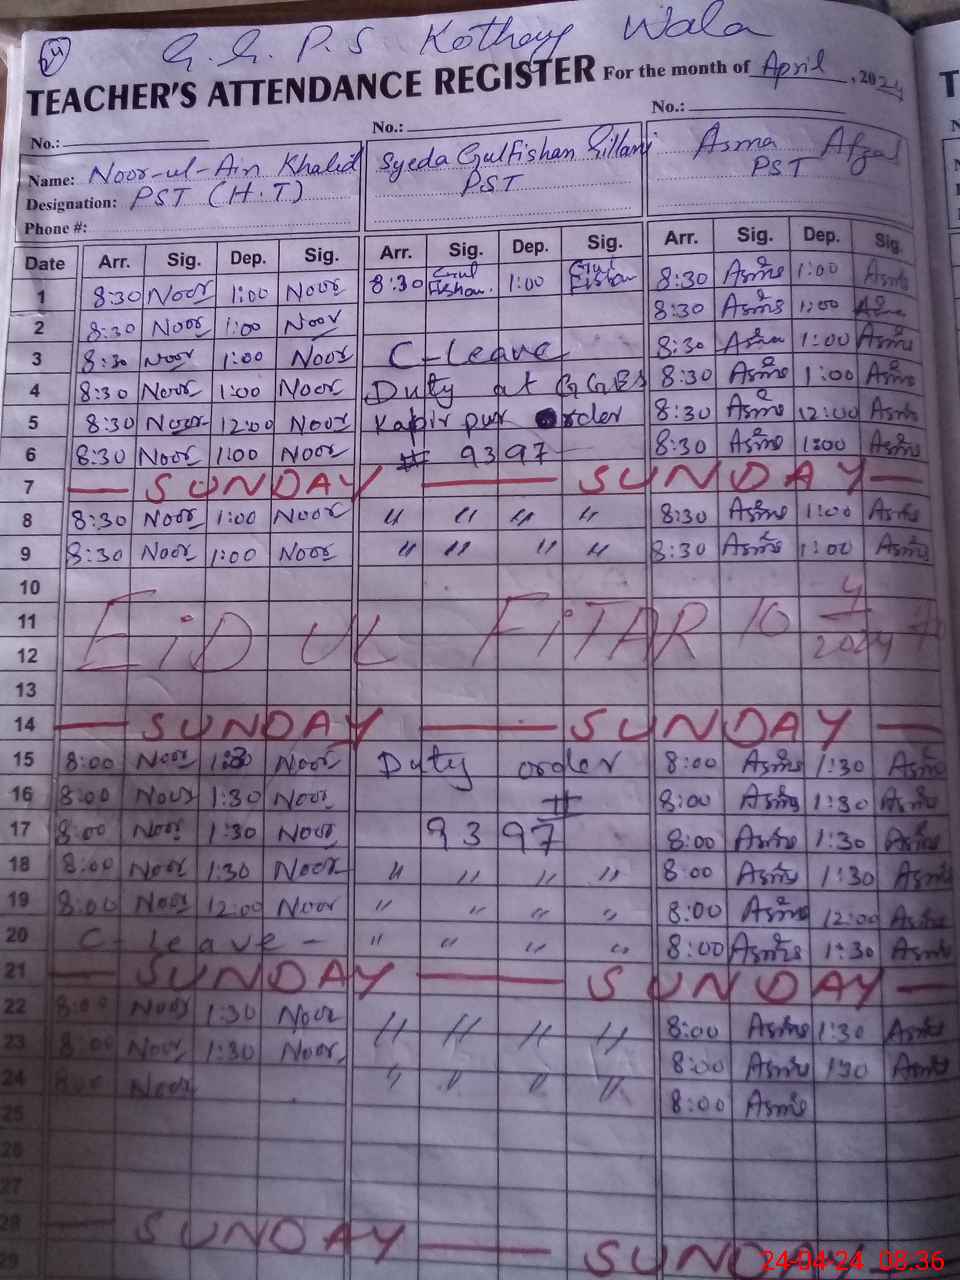 G. G. P. S Kothay Wala
TEACHER'S ATTENDANCE REGISTER For the month of April, 2024
No.: No.: No.:
Name: Noor-ul-Ain Khalid Syeda Gulfishan Gillani Asma Afzal
Designation: PST (H.T) PST PST
Phone #:
Date Arr. Sig. Dep. Sig. Arr. Sig. Dep. Sig. Arr. Sig. Dep. Sig.
1 8:30 Noor 1:00 Noor 8:30 Gul Fishan. 1:00 Gul Fishan 8:30 Asma 1:00 Asma
2 8:30 Noor 1:00 Noor 8:30 Asma 1:00 Asma
3 8:30 Noor 1:00 Noor C-Leave 8:30 Asma 1:00 Asma
4 8:30 Noor 1:00 Noor Duty at GGES 8:30 Asma 1:00 Asma
5 8:30 Noor 12:00 Noor Kapir pur order 8:30 Asma 12:00 Asma
6 8:30 Noor 1:00 Noor # 9397 8:30 Asma 1:00 Asma
7 — SUNDAY — SUNDAY —
8 8:30 Noor 1:00 Noor " " " " 8:30 Asma 1:00 Asma
9 8:30 Noor 1:00 Noor " " " " 8:30 Asma 1:00 Asma
10
11 EiD UL FiTAR 10 4/2024
12
13
14 — SUNDAY — SUNDAY —
15 8:00 Noor 1:30 Noor Duty order 8:00 Asma 1:30 Asma
16 8:00 Noor 1:30 Noor # 8:00 Asma 1:30 Asma
17 8:00 Noor 1:30 Noor 9397 8:00 Asma 1:30 Asma
18 8:00 Noor 1:30 Noor " " " " 8:00 Asma 1:30 Asma
19 8:00 Noor 12:00 Noor " " " " 8:00 Asma 12:00 Asma
20 C-Leave - " " " " 8:00 Asma 1:30 Asma
21 — SUNDAY — SUNDAY —
22 8:00 Noor 1:30 Noor " " " " 8:00 Asma 1:30 Asma
23 8:00 Noor 1:30 Noor " " " " 8:00 Asma 1:30 Asma
24 8:00 Noor 8:00 Asma
25
26
27
28 — SUNDAY — SUNDAY
29
24-04-24 08:36